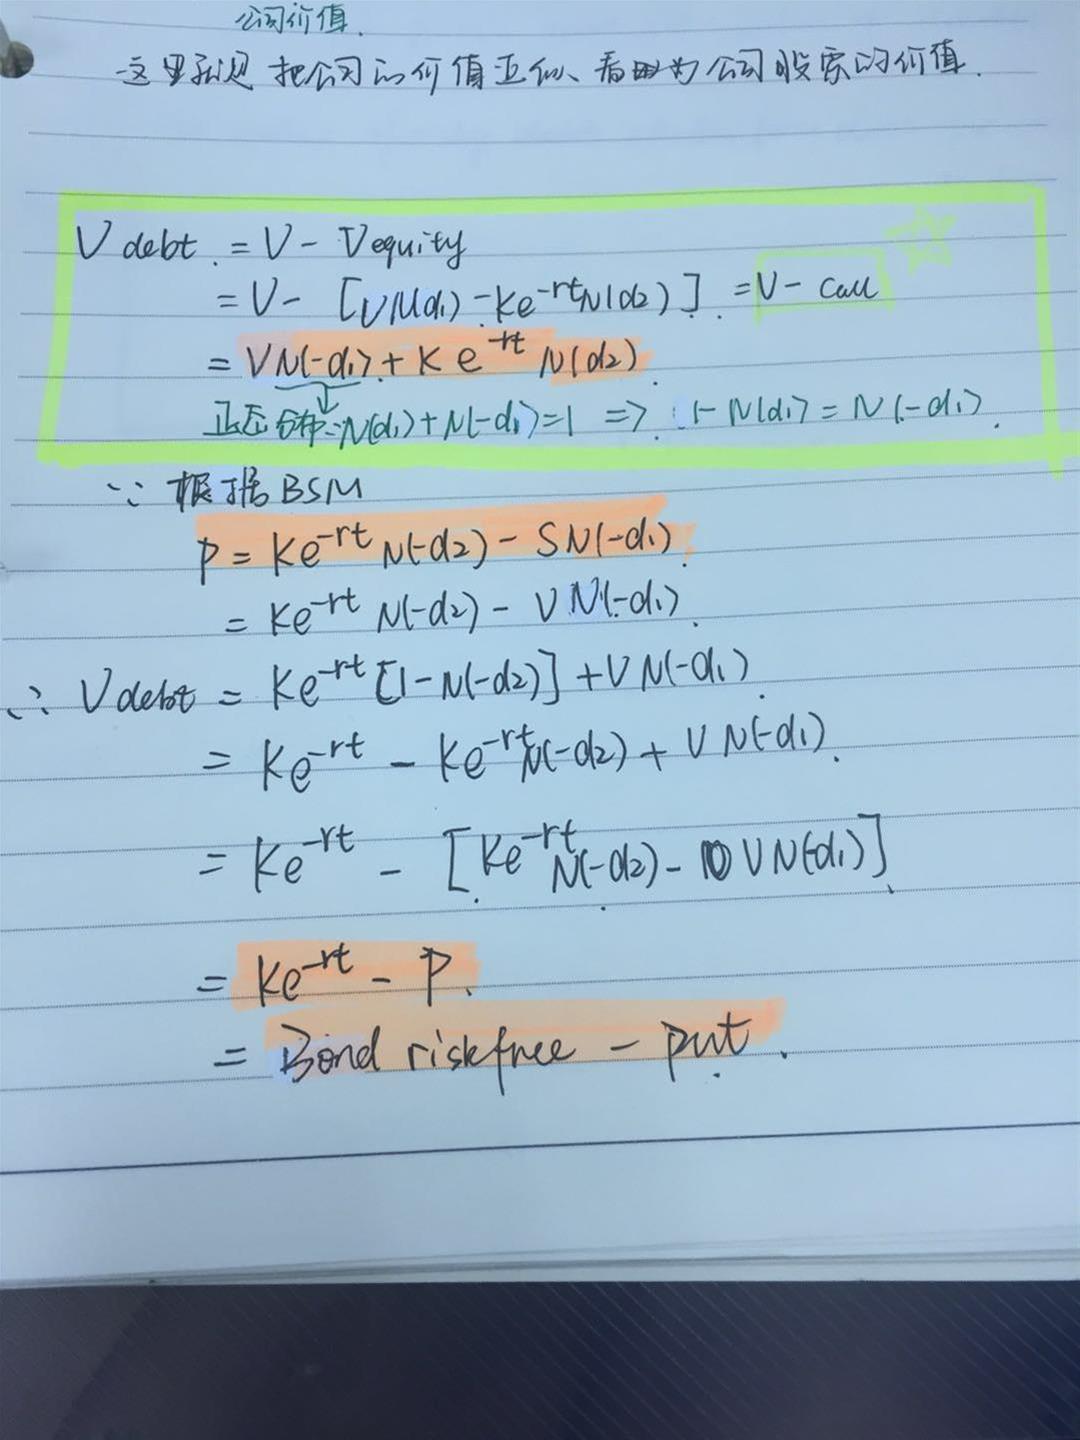 公司价值.
这里就是把公司的价值近似、看成为公司股票的价值.
Vdebt. = V - Vequity
= V - [VN(d₁) - Ke^-rt N(d₂)] = V - call
= VN(-d₁) + Ke^-rt N(d₂).
正态分布: N(d₁)+N(-d₁)=1 => 1-N(d₁)=N(-d₁).
∵ 根据BSM
P = Ke^-rt N(-d₂) - SN(-d₁).
= Ke^-rt N(-d₂) - VN(-d₁).
∴ Vdebt = Ke^-rt [1-N(-d₂)] + VN(-d₁).
= Ke^-rt - Ke^-rt N(-d₂) + VN(-d₁).
= Ke^-rt - [Ke^-rt N(-d₂) - VN(-d₁)]
= Ke^-rt - P.
= Bond riskfree - put.